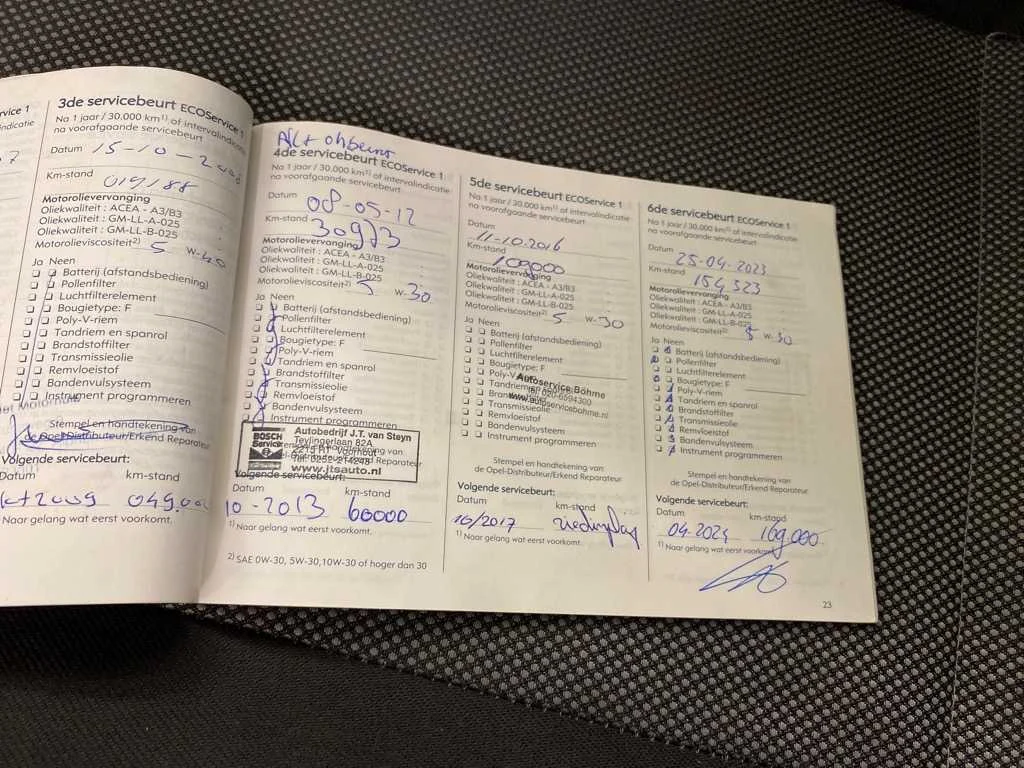 rvice 1
ndicatie
7
3de servicebeurt ECOService 1
Na 1 jaar / 30.000 km1) of intervalindicatie
na voorafgaande servicebeurt
Datum 15-10-2008
Km-stand 019188
Motorolievervanging
Oliekwaliteit : ACEA - A3/B3
Oliekwaliteit : GM-LL-A-025
Oliekwaliteit : GM-LL-B-025
Motorolieviscositeit2) 5 W-40
Ja Neen
Batterij (afstandsbediening)
Pollenfilter
Luchtfilterelement
Bougietype: F
Poly-V-riem
Tandriem en spanrol
Brandstoffilter
Transmissieolie
Remvloeistof
Bandenvulsysteem
Instrument programmeren
Stempel en handtekening van
de Opel-Distributeur/Erkend Reparateur
Volgende servicebeurt:
Datum km-stand
2009 049.000
1) Naar gelang wat eerst voorkomt.
4de servicebeurt ECOService 1
Na 1 jaar / 30.000 km1) of intervalindicatie
na voorafgaande servicebeurt
Datum 08-05-12
Km-stand 30973
Motorolievervanging
Oliekwaliteit : ACEA - A3/B3
Oliekwaliteit : GM-LL-A-025
Oliekwaliteit : GM-LL-B-025
Motorolieviscositeit2) 5 W-30
Ja Neen
Batterij (afstandsbediening)
Pollenfilter
Luchtfilterelement
Bougietype: F
Poly-V-riem
Tandriem en spanrol
Brandstoffilter
Transmissieolie
Remvloeistof
Bandenvulsysteem
Instrument programmeren
BOSCH
Service
Autobedrijf J.T. van Steyn
Teylingerlaan 82A
2215 RT Voorhout
Tel. 0252-214248
www.jtsauto.nl
Volgende servicebeurt:
Datum km-stand
10-2013 60000
1) Naar gelang wat eerst voorkomt.
2) SAE 0W-30, 5W-30,10W-30 of hoger dan 30
5de servicebeurt ECOService 1
Na 1 jaar / 30.000 km1) of intervalindicatie
na voorafgaande servicebeurt
Datum
11-10.2016
Km-stand
109000
Motorolievervanging
Oliekwaliteit : ACEA - A3/B3
Oliekwaliteit : GM-LL-A-025
Oliekwaliteit : GM-LL-B-025
Motorolieviscositeit2) 5 W-30
Ja Neen
Batterij (afstandsbediening)
Pollenfilter
Luchtfilterelement
Bougietype: F
Poly-V-riem
Autoservice Böhme
Tandriem en spanrol
tel. 020-6594300
Brandstoffilter
www.autoserviceböhme.nl
Transmissieolie
Remvloeistof
Bandenvulsysteem
Instrument programmeren
Stempel en handtekening van
de Opel-Distributeur/Erkend Reparateur
Volgende servicebeurt:
Datum km-stand
10/2017
1) Naar gelang wat eerst voorkomt.
6de servicebeurt ECOService 1
Na 1 jaar / 30.000 km1) of intervalindicatie
na voorafgaande servicebeurt
Datum
25-04-2023
Km-stand
154523
Motorolievervanging
Oliekwaliteit : ACEA - A3/B3
Oliekwaliteit : GM-LL-A-025
Oliekwaliteit : GM-LL-B-025
Motorolieviscositeit2) 5 W-30
Ja Neen
Batterij (afstandsbediening)
Pollenfilter
Luchtfilterelement
Bougietype: F
Poly-V-riem
Tandriem en spanrol
Brandstoffilter
Transmissieolie
Remvloeistof
Bandenvulsysteem
Instrument programmeren
Stempel en handtekening van
de Opel-Distributeur/Erkend Reparateur
Volgende servicebeurt:
Datum km-stand
04-2024 169.000
1) Naar gelang wat eerst voorkomt.
23